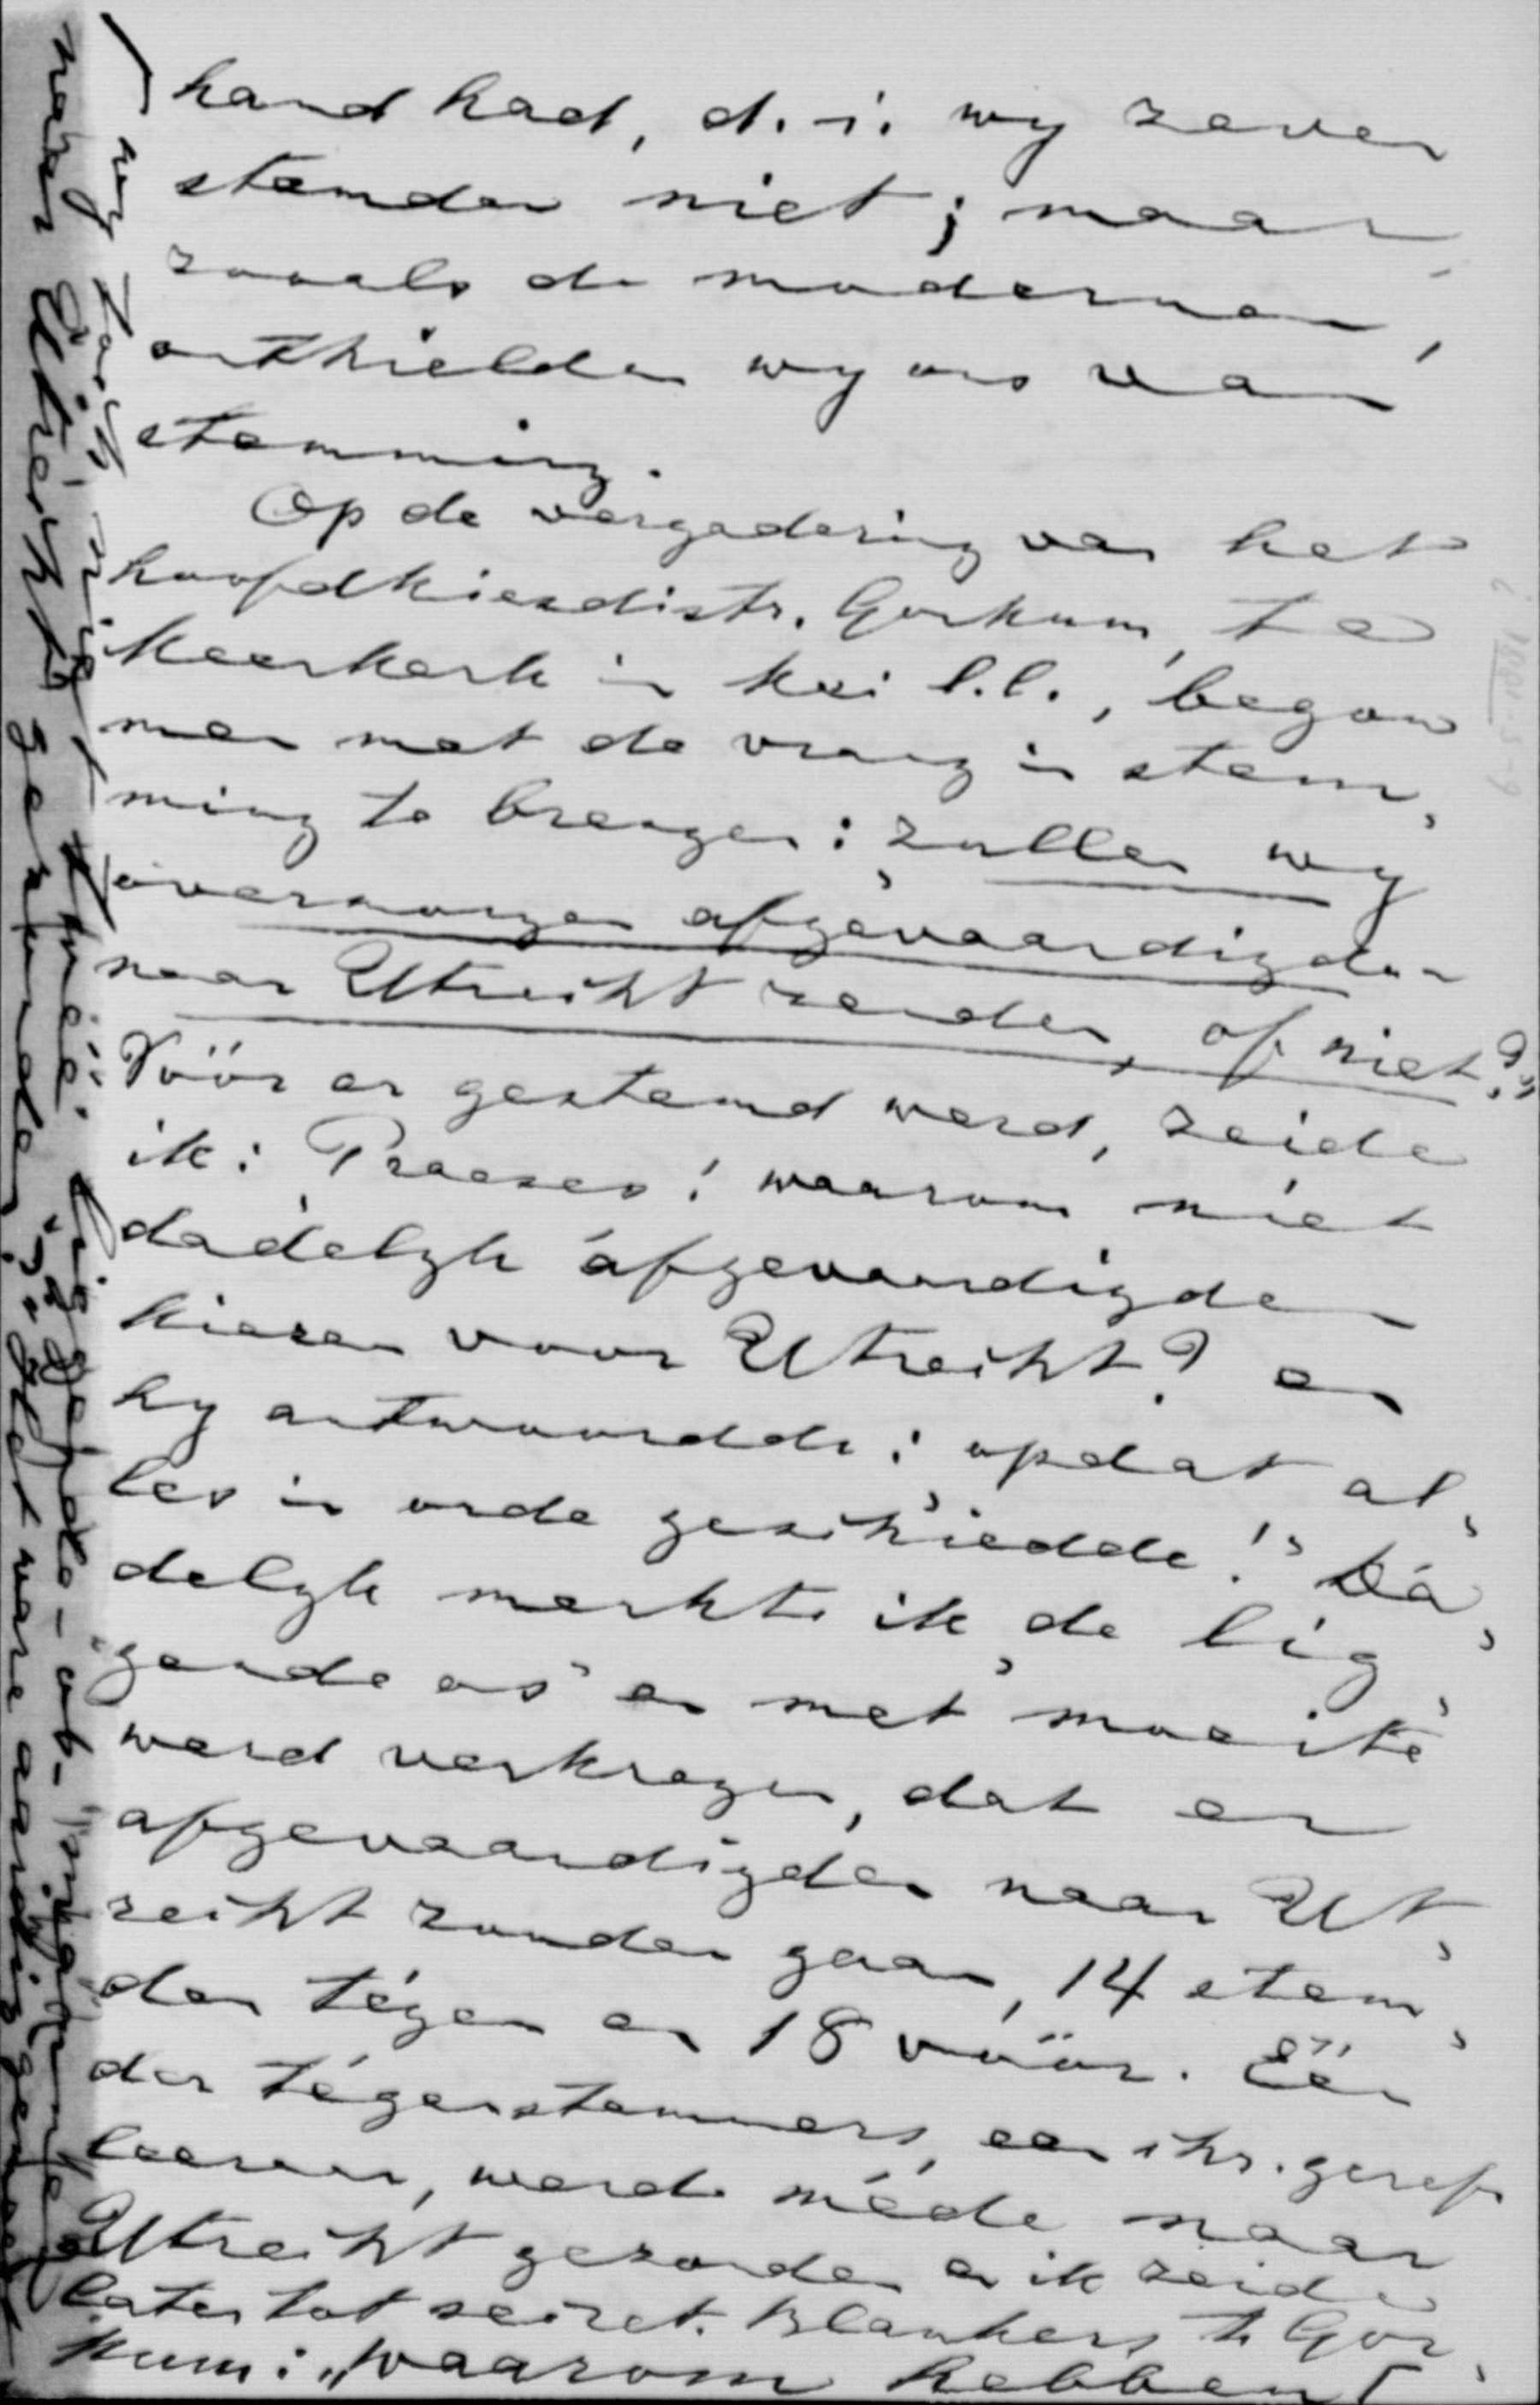 hand had, d. i. wy zeven
stemden niet; maar,
zooals de modernen,
onthielden wy ons van
stemming.
Op de vergadering van het
hoofdkiesdistr. Gorkum, te
Meerkerk in Mei l.l., begon
men met de vraag in stem,
ming te brengen: "zullen wy
overmorgen afgevaardigden
naar Utrecht zenden, of niet?"
Vóór er gestemd werd, zeide
ik: Praeses! waarom niet
dadelyk afgevaardigden
kiezen voor Utrecht? en
hy antwoordde: opdat al,
les in orde geschiedde!" Da,
delyk merkte ik "de lig,
gende as" en met moeite
werd verkregen, dat er
afgevaardigden naar Ut,
recht zouden gaan, 14 stem,
den tégen en 18 vóór. Eén
der tégenstemmers, een chr. geref.
leeraar, werd méde naar
Utrecht gezonden en ik zeide
later tot secret. Blankers te Gor,
kum: "waarom hebben
naar Utrecht gezonden